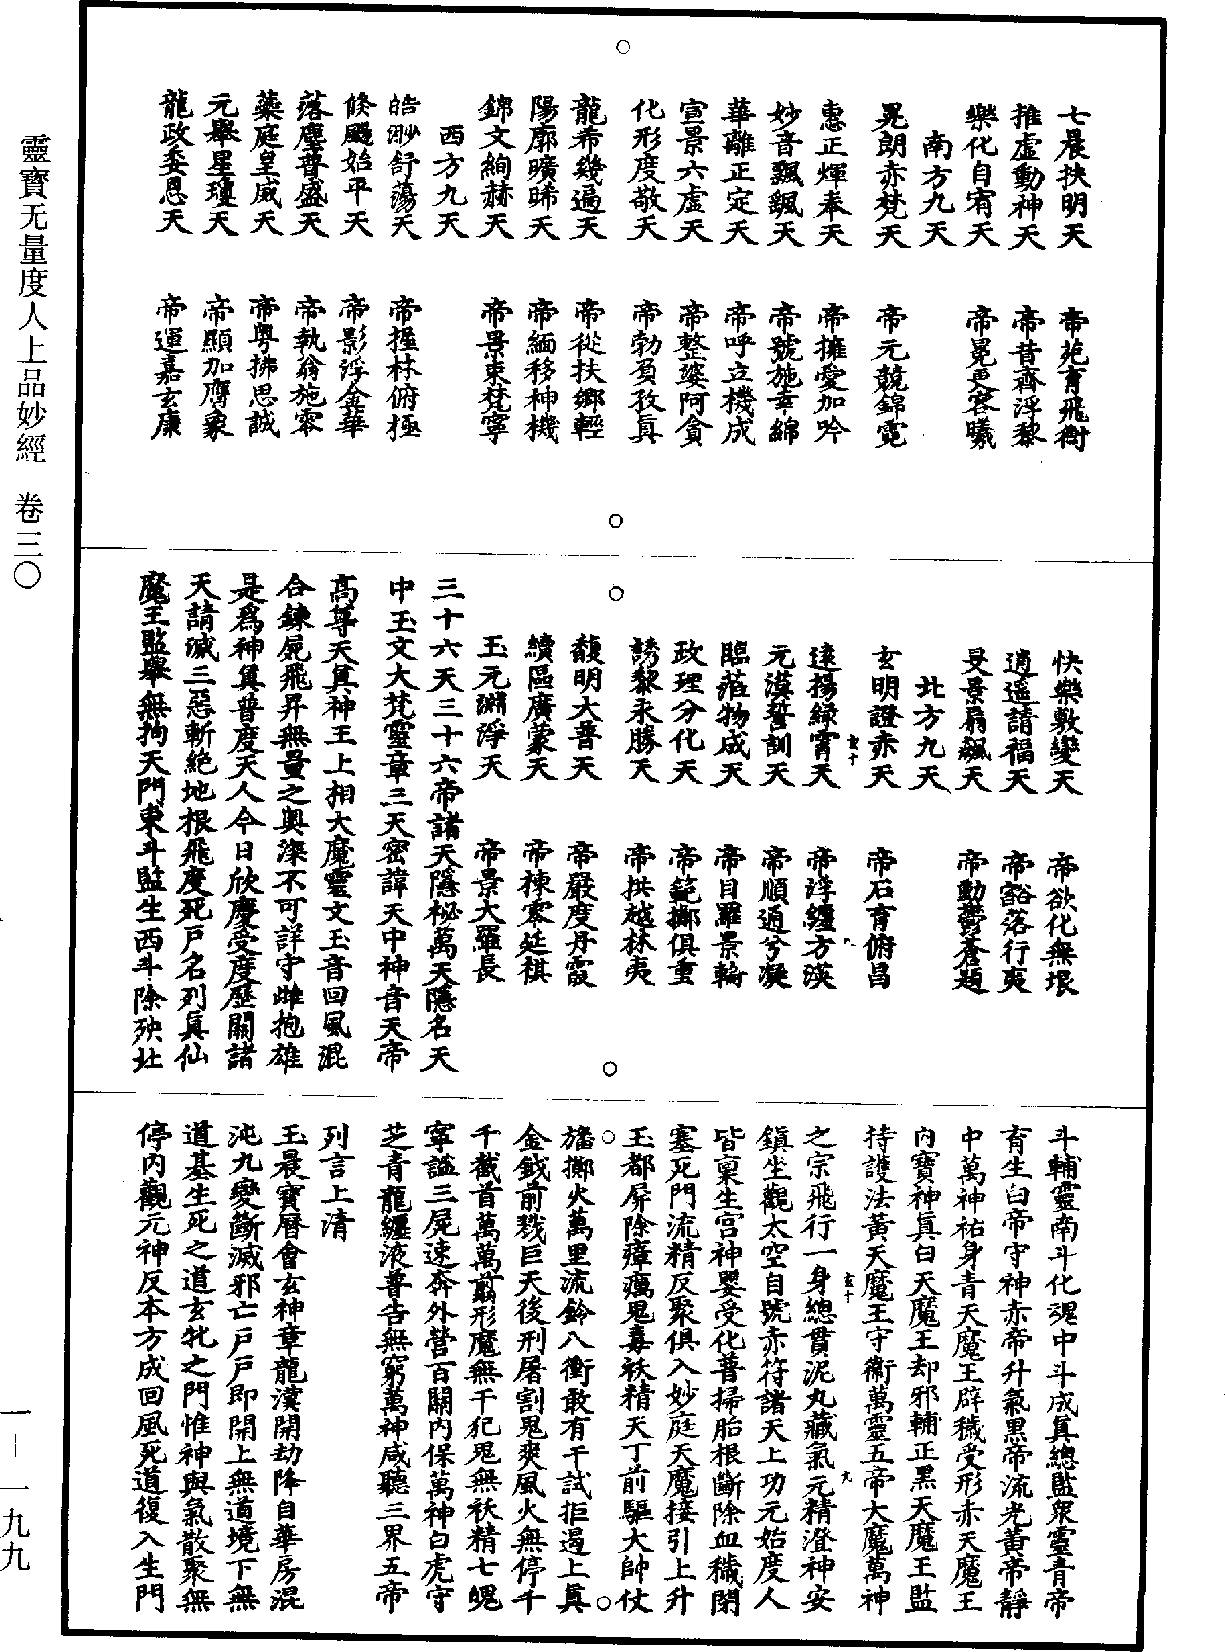 七晨扶明天　帝苑育飛衡
推虛動神天　帝昔齊浮黎
樂化自宥天　帝冕更容曦
南方九天
晃朗赤梵天　帝元競錦霓
惠正煇奉天　帝擁愛加吟
妙音飄颻天　帝號施幸綿
華離正定天　帝呼立機成
宣景六虛天　帝整婆阿貪
化形度敬天　帝勃賀孜真
龍希幾遍天　帝從扶鄉輕
陽廓曠晞天　帝緬移神機
錦文絢赫天　帝景束梵寧
西方九天
皓渺舒蕩天　帝握林俯極
倏颺始平天　帝影浮金華
落塵普盛天　帝執翁施零
藥庭皇威天　帝粤拂思誠
元舉星瓊天　帝顯加膺象
龍政委恩天　帝運嘉玄康
快樂敷變天　帝欲化無垠
逍遙請福天　帝豁落行夷
旻景扇飆天　帝動鬱蒼題
北方九天
玄明證赤天　帝石育俯昌
遠揚綠霄天　帝浮纏方漢
元漠誓訓天　帝順通兮凝
臨蒞物成天　帝目羅景輪
政理分化天　帝範擲俱重
誘黎永勝天　帝拱越林夷
馥明大普天　帝嚴度丹霞
續區廣蒙天　帝棟寥延祺
玉元淵淨天　帝景大羅長
三十六天三十六帝諸天隱祕萬天隱名天
中玉文大梵靈章三天密諱天中神音天帝
高尊天真神王上相大魔靈文玉音回風混
合鍊屍飛昇無量之奥深不可詳守雌抱雄
是為神真普度天人今日欣慶受度歷關諸
天請滅三惡斬絕地根飛度死戶名列真仙
魔王監舉無拘天門東斗監生西斗除殃北
斗輔靈南斗化魂中斗成真總監衆靈青帝
育生白帝守神赤帝升氣黑帝流光黃帝靜
中萬神祐身青天魔王辟穢受形赤天魔王
內寶神真白天魔王却邪輔正黑天魔王監
持護法黃天魔王守衛萬靈五帝大魔萬神
之宗飛行一身總貫泥丸藏氣元精澄神安
鎮坐觀太空自號赤符諸天上功元始度人
皆稟生宮神嬰受化普掃胎根斷除血穢閉
塞死門流精反聚俱入妙庭天魔接引上升
玉都屏除瘴癘鬼毒袄精天丁前驅大帥仗
旛擲火萬里流鈴八衝敢有干試拒遏上真
金鉞前戮巨天後刑屠割鬼爽風火無停千
千截首萬萬翦形魔無干犯鬼無袄精七魄
寧謐三屍速奔外營百關內保萬神白虎守
芝青龍纏液普告無窮萬神咸聽三界五帝
列言上清
玉晨寶曆會玄神章龍漢開劫降自華房混
沌九變斷滅邪亡戶戶即開上無道境下無
道基生死之道玄牝之門惟神與氣散聚無
停內觀元神反本方成回風死道復入生門
靈寶无量度人上品妙經　卷三〇
一—一九九